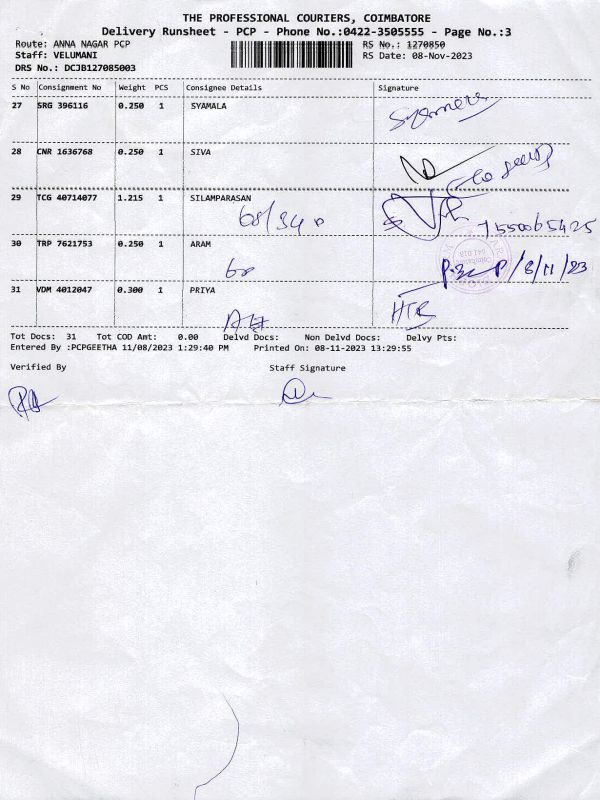 THE PROFESSIONAL COURIERS, COIMBATORE
Delivery Runsheet - PCP - Phone No.:0422-3505555 - Page No.:3
Route: ANNA NAGAR PCP
RS No.: 1270850
Staff: VELUMANI
RS Date: 08-Nov-2023
DRS No.: DCJB127085003
S No Consignment No Weight PCS Consignee Details Signature
27 SRG 396116 0.250 1 SYAMALA
28 CNR 1636768 0.250 1 SIVA
29 TCG 40714077 1.215 1 SILAMPARASAN
7550065425
30 TRP 7621753 0.250 1 ARAM
8/11/23
31 VDM 4012047 0.300 1 PRIYA
Tot Docs: 31 Tot COD Amt: 0.00 Delvd Docs: Non Delvd Docs: Delvy Pts:
Entered By :PCPGEETHA 11/08/2023 1:29:40 PM Printed On: 08-11-2023 13:29:55
Verified By Staff Signature